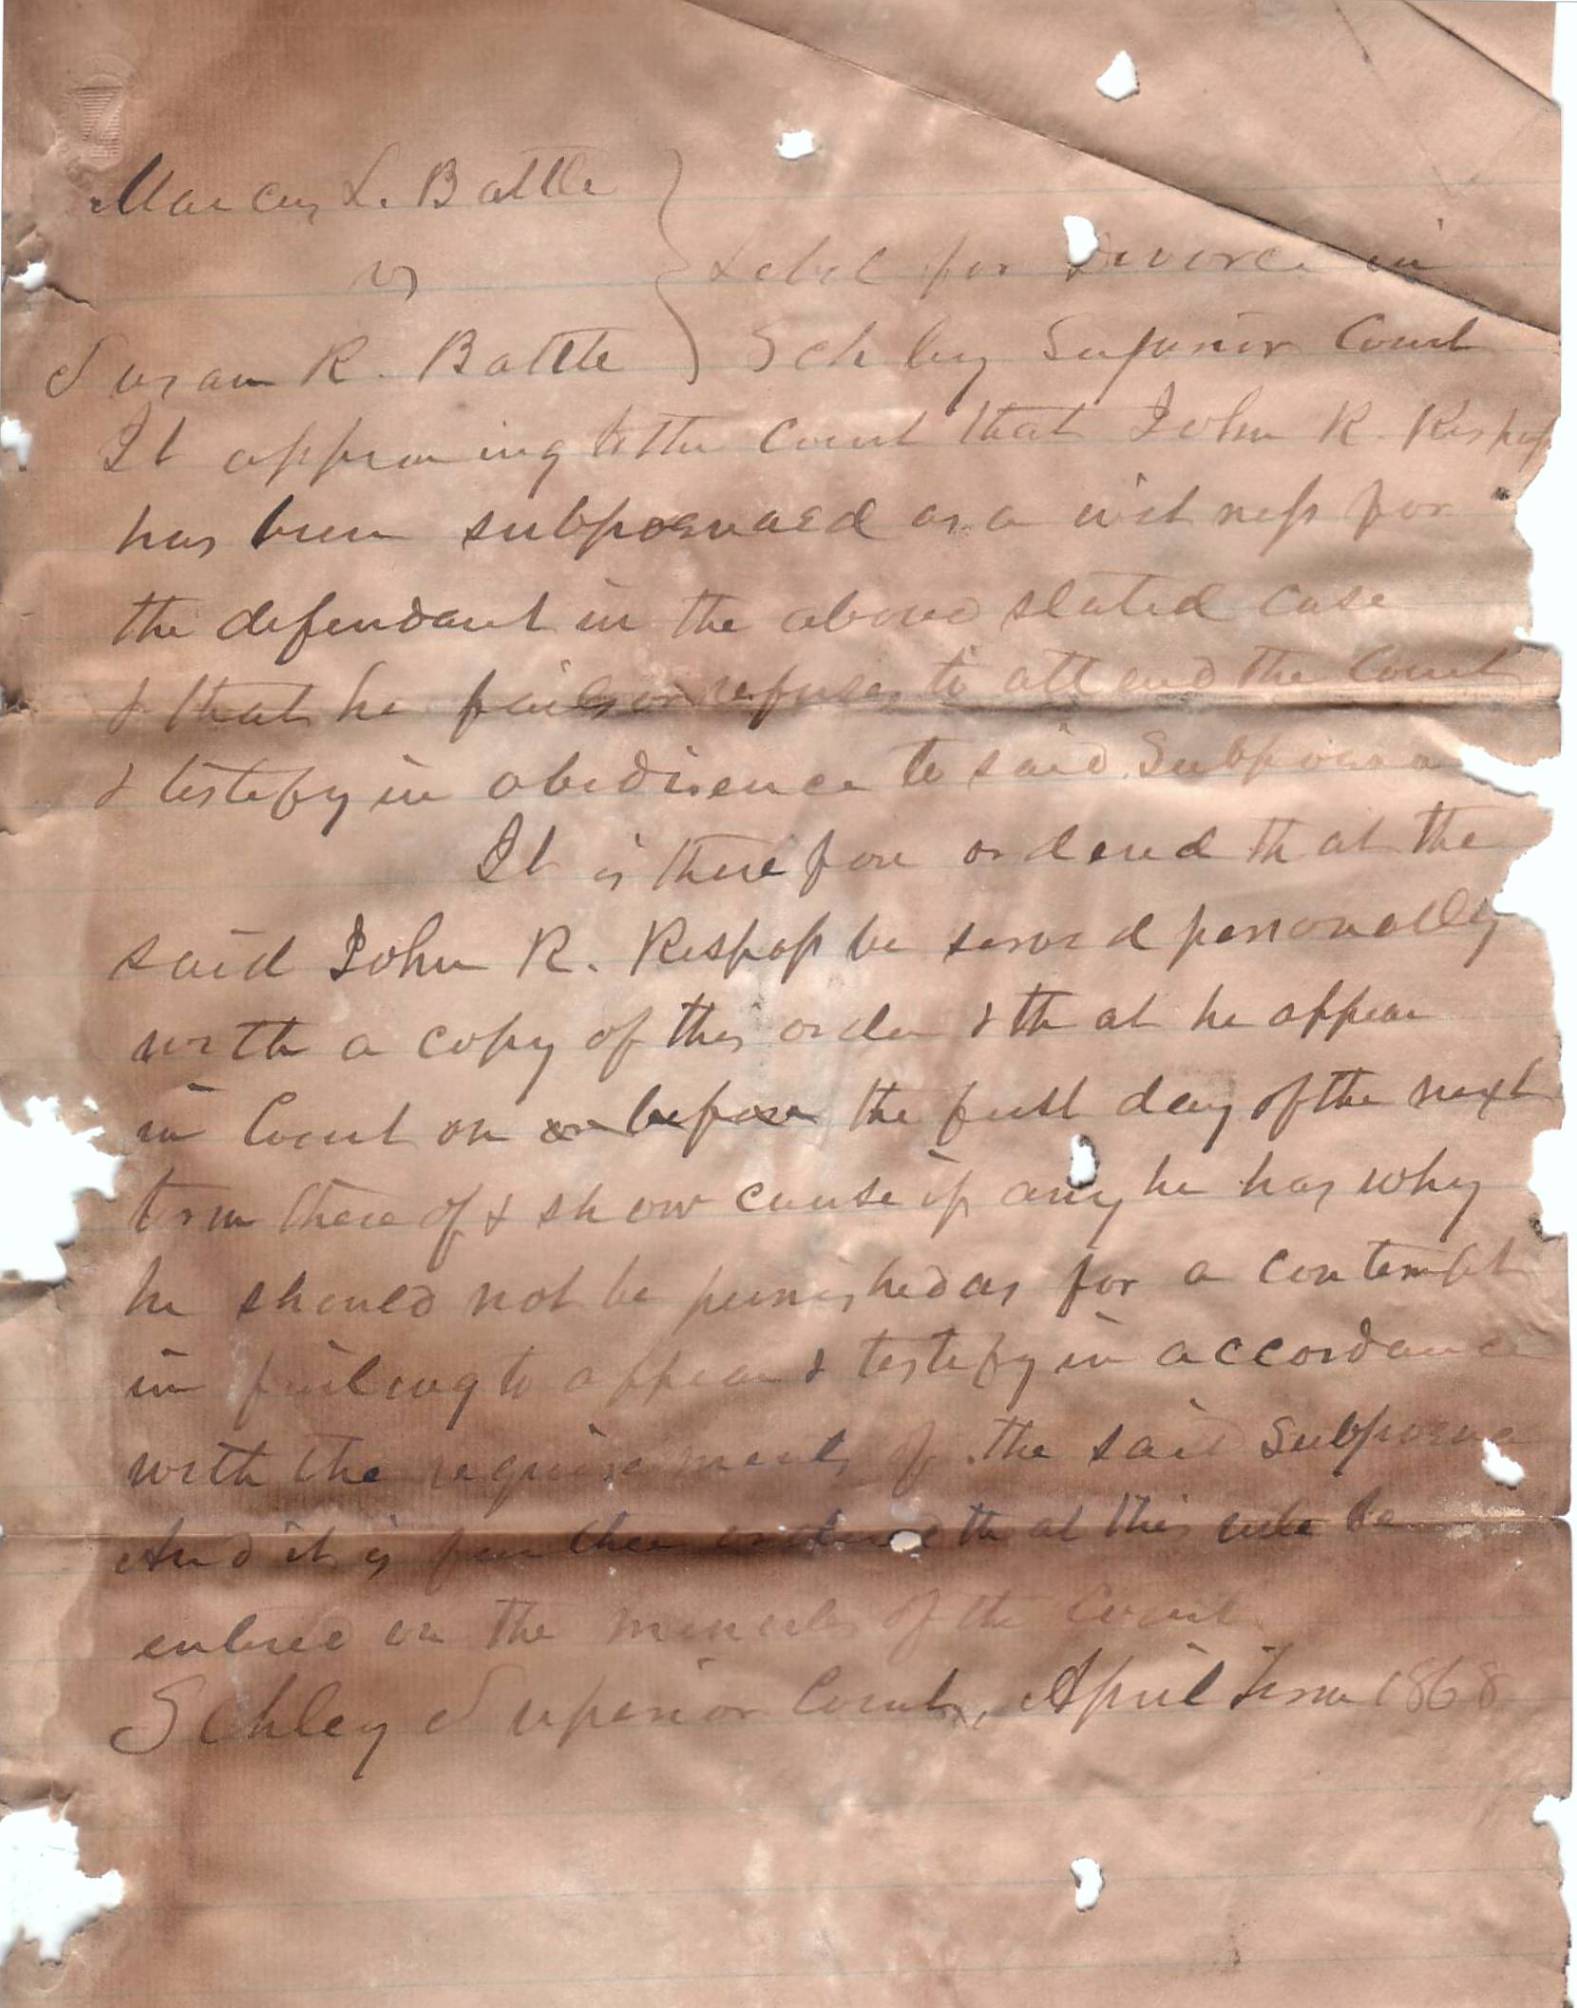 Marcus L. Battle
vs
Libel for Divorce in
Susan R. Battle Schley Superior Court
It appearing to the Court that John R. Respass
has been subpoenaed as a witness for
the defendant in the above stated case
& that he fails or refuses to attend the Court
& testify in obedience to said Subpoena
It is therefore ordered that the
said John R. Respass be served personally
with a copy of this order & that he appear
in Court on or before the first day of the next
term thereof & show cause if any he has why
he should not be punished as for a contempt
in failing to appear & testify in accordance
with the requirements of the said Subpoena
And it is further ordered that this rule be
entered on the minutes of the Court
Schley Superior Court, April Term 1868